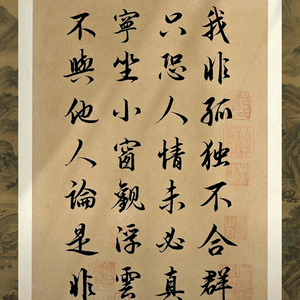 我非孤独不合群
只恐人情未必真
寧坐小窗觀浮雲
不與他人論是非